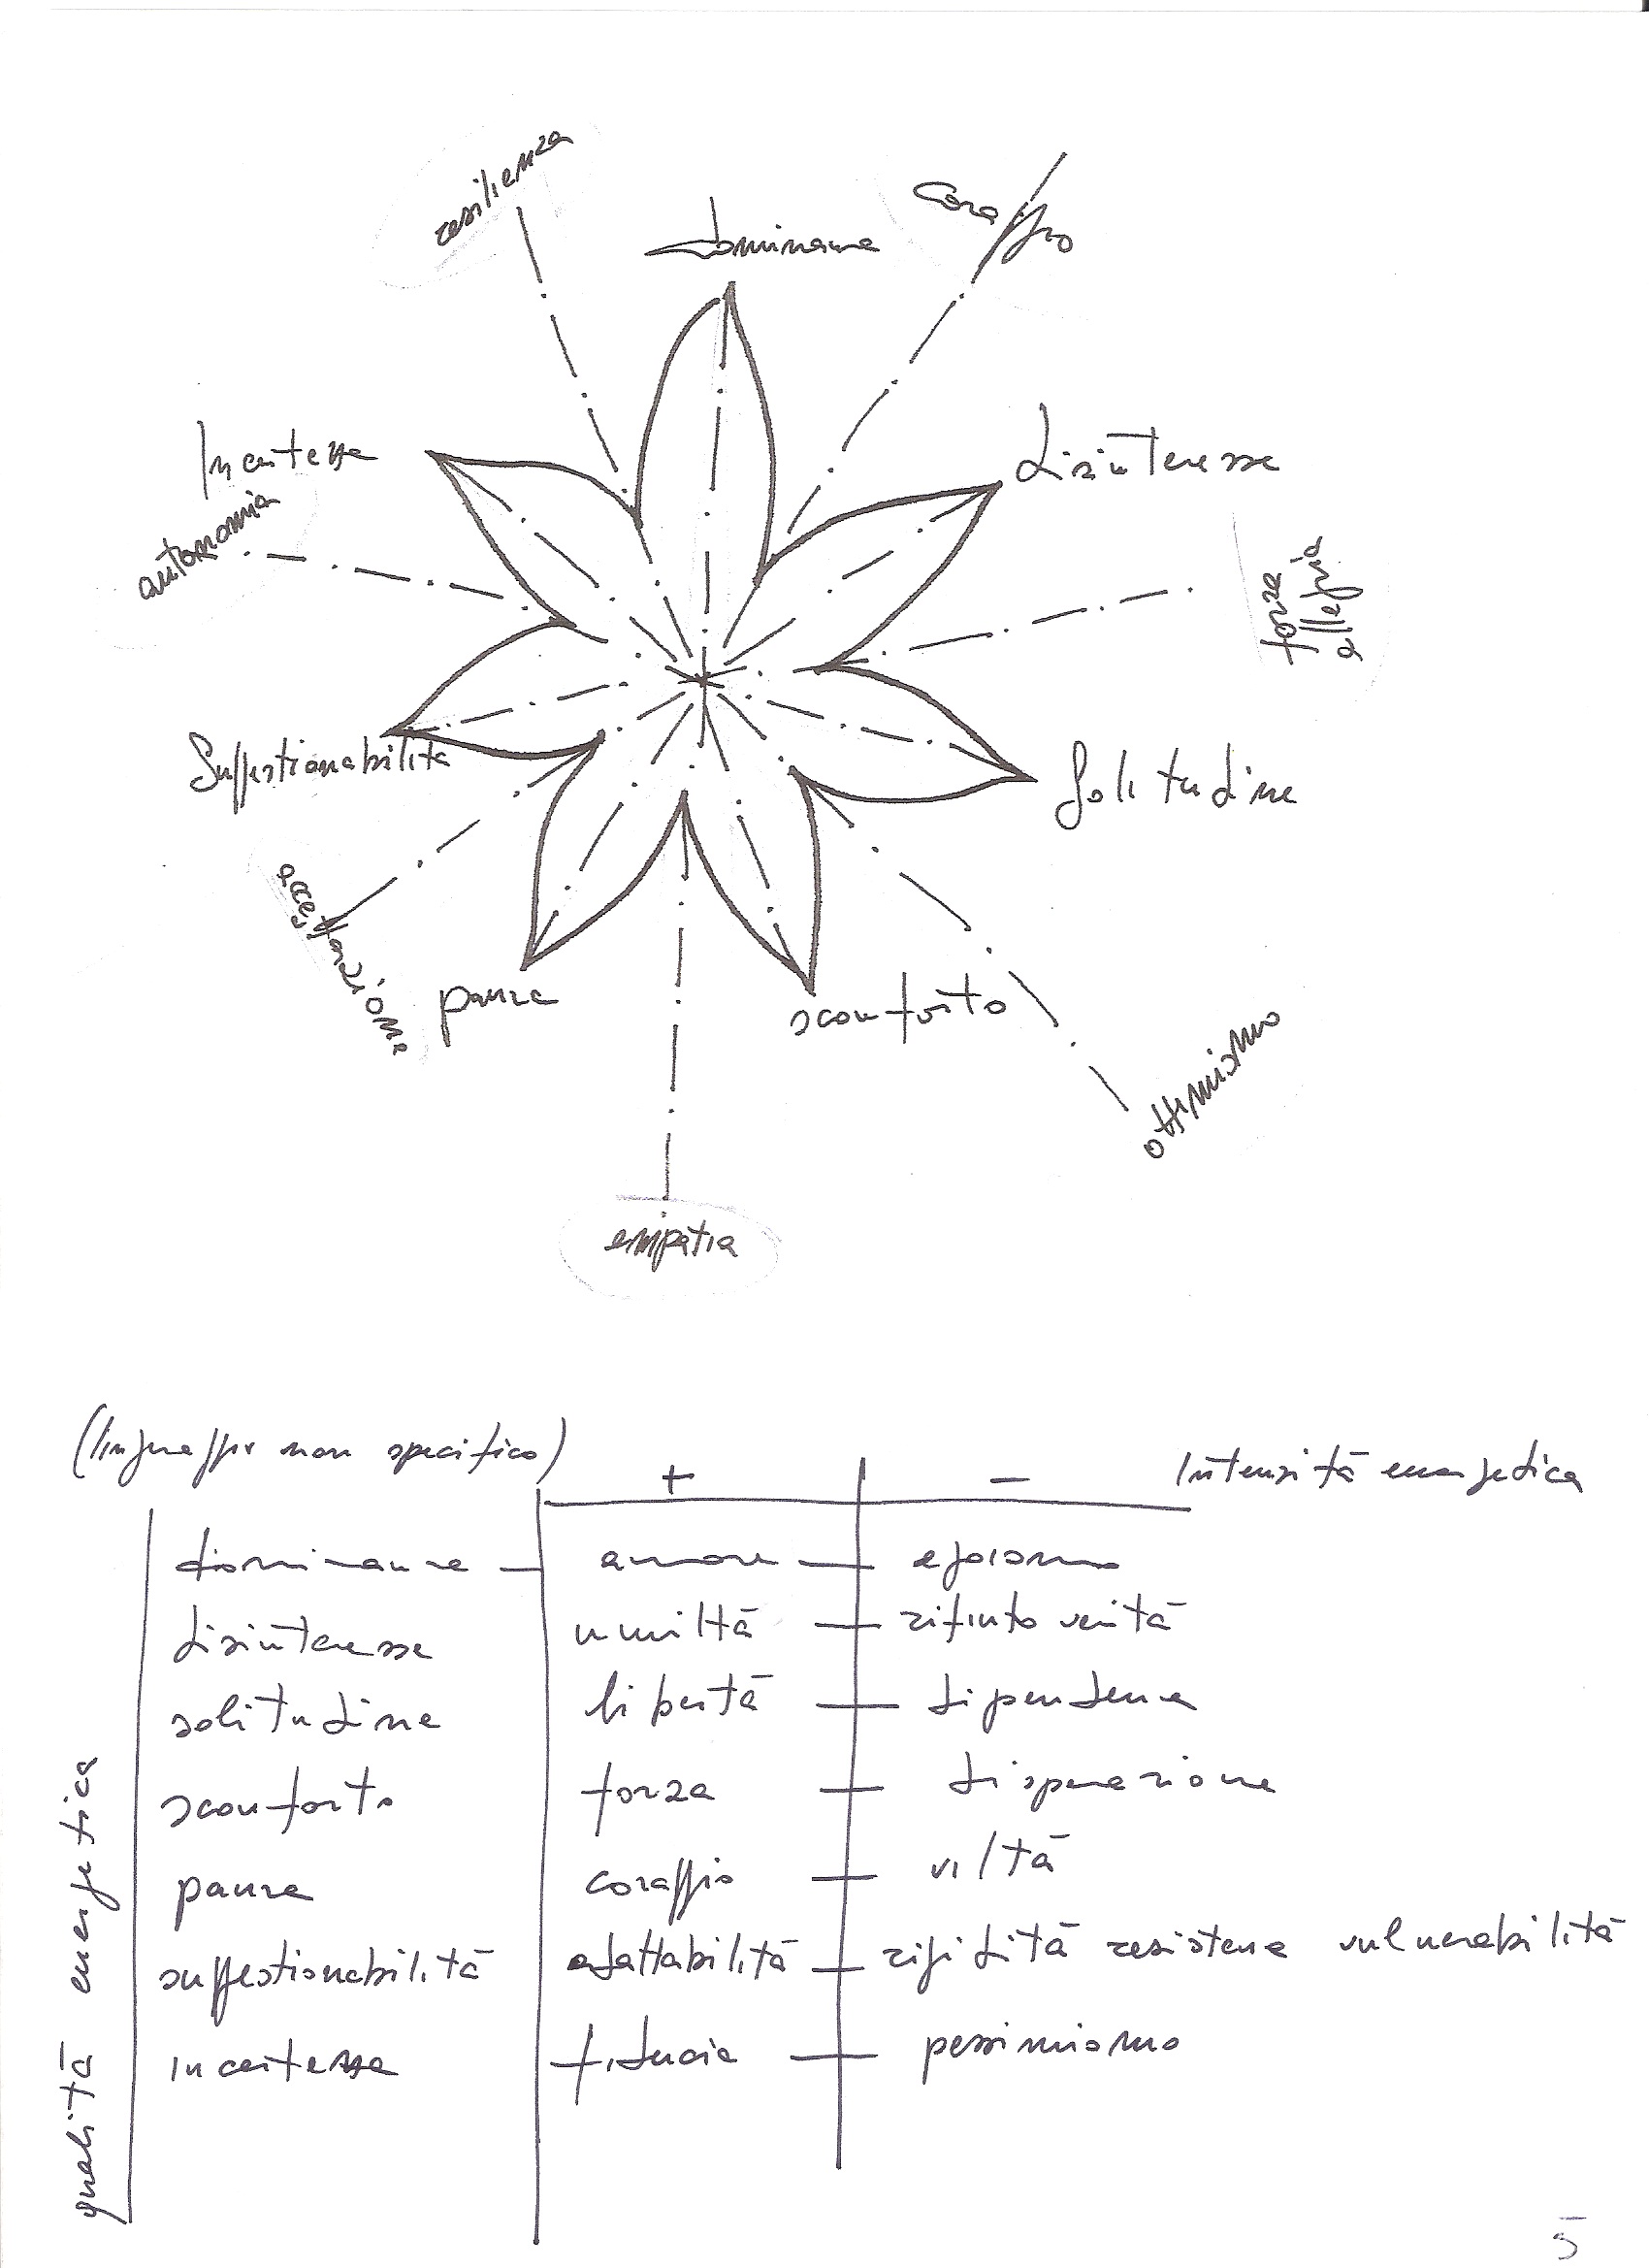 resilienza
coraggio
dominanza
Incertezza
disinteresse
autonomia
forza
allegria
Suggestionabilità
Solitudine
accettazione
paura
sconforto
ottimismo
empatia
(linguaggio non specifico)
+ − Intensità energetica
qualità energetica
dominanza — amore — egoismo
disinteresse umiltà — rifiuto verità
solitudine libertà — dipendenza
sconforto forza — disperazione
paura coraggio — viltà
suggestionabilità adattabilità — rigidità resistenza vulnerabilità
incertezza fiducia — pessimismo
5